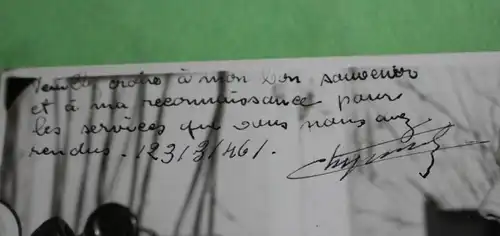 Veuillez croire à mon bon souvenir
et à ma reconnaissance pour
les services que vous nous avez
rendus. 123/3/461.